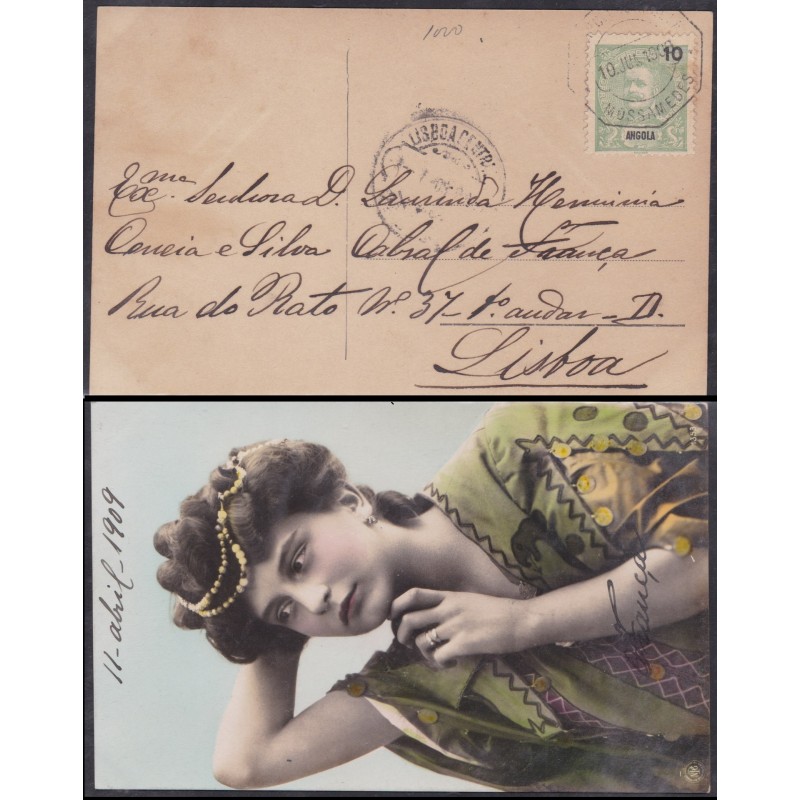 1000
10
10 JUL 1909
MOSSAMEDES
ANGOLA
LISBOA CENTRAL
Exc.ma Senhora D. Laurinda Herminia
Correia e Silva Cabral de França
Rua do Rato Nº 37 - 1º andar - D.
Lisboa
11 - abril - 1909
França